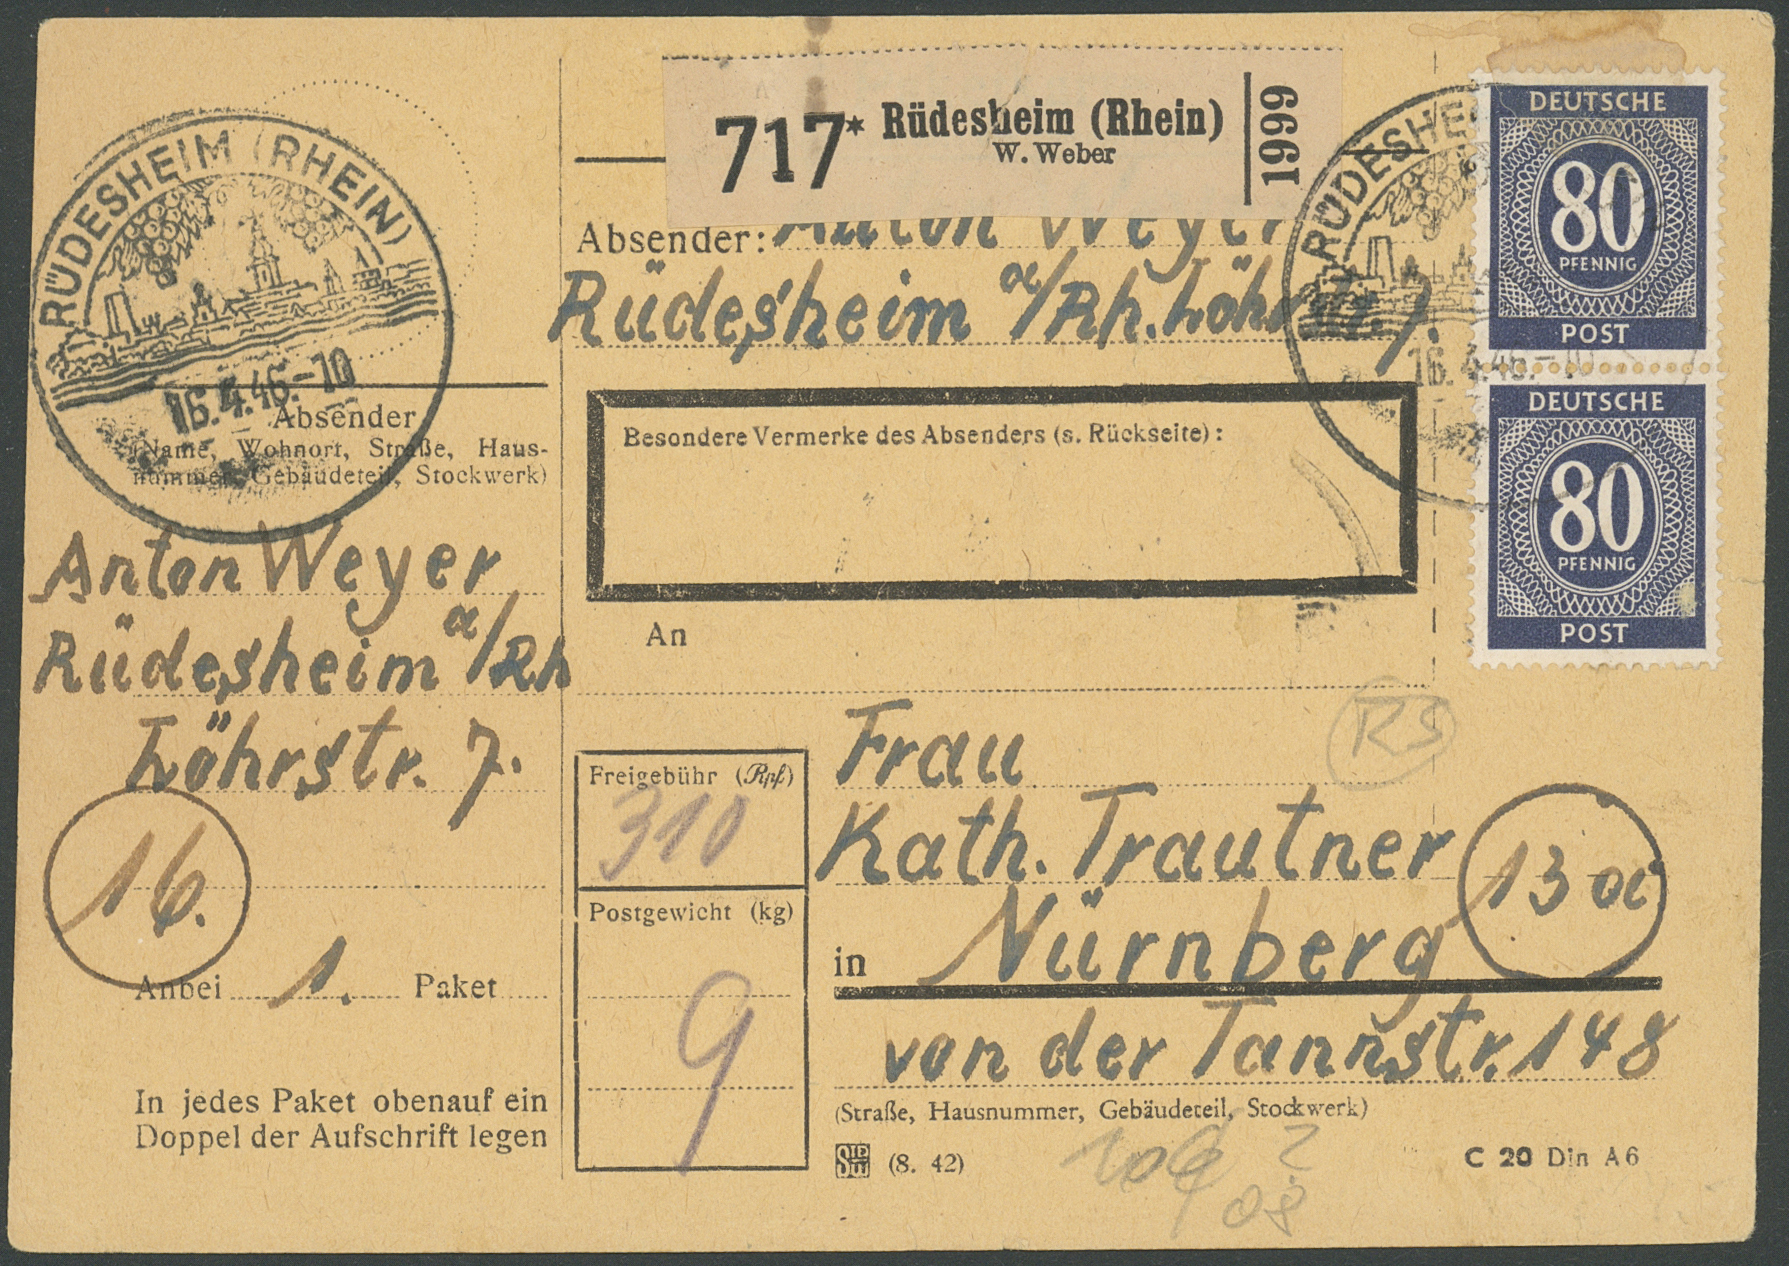 RÜDESHEIM (RHEIN)
16.4.46.-10
Absender
(Name, Wohnort, Straße, Haus-
nummer, Gebäudeteil, Stockwerk)
Anton Weyer
Rüdesheim a/Rh
Löhrstr. 7.
16.
Anbei 1. Paket
In jedes Paket obenauf ein
Doppel der Aufschrift legen
717* Rüdesheim (Rhein)
W. Weber
1999
Absender: Anton Weyer
Rüdesheim a/Rh. Löhrstr. 7.
Besondere Vermerke des Absenders (s. Rückseite):
An
RÜDESHE
16.4.46.-10
DEUTSCHE
80
PFENNIG
POST
DEUTSCHE
80
PFENNIG
POST
RS
Freigebühr (Rpf)
310
Postgewicht (kg)
9
Frau
Kath. Trautner
13a
in Nürnberg
von der Tannstr. 148
(Straße, Hausnummer, Gebäudeteil, Stockwerk)
(8. 42)
C 20 Din A6